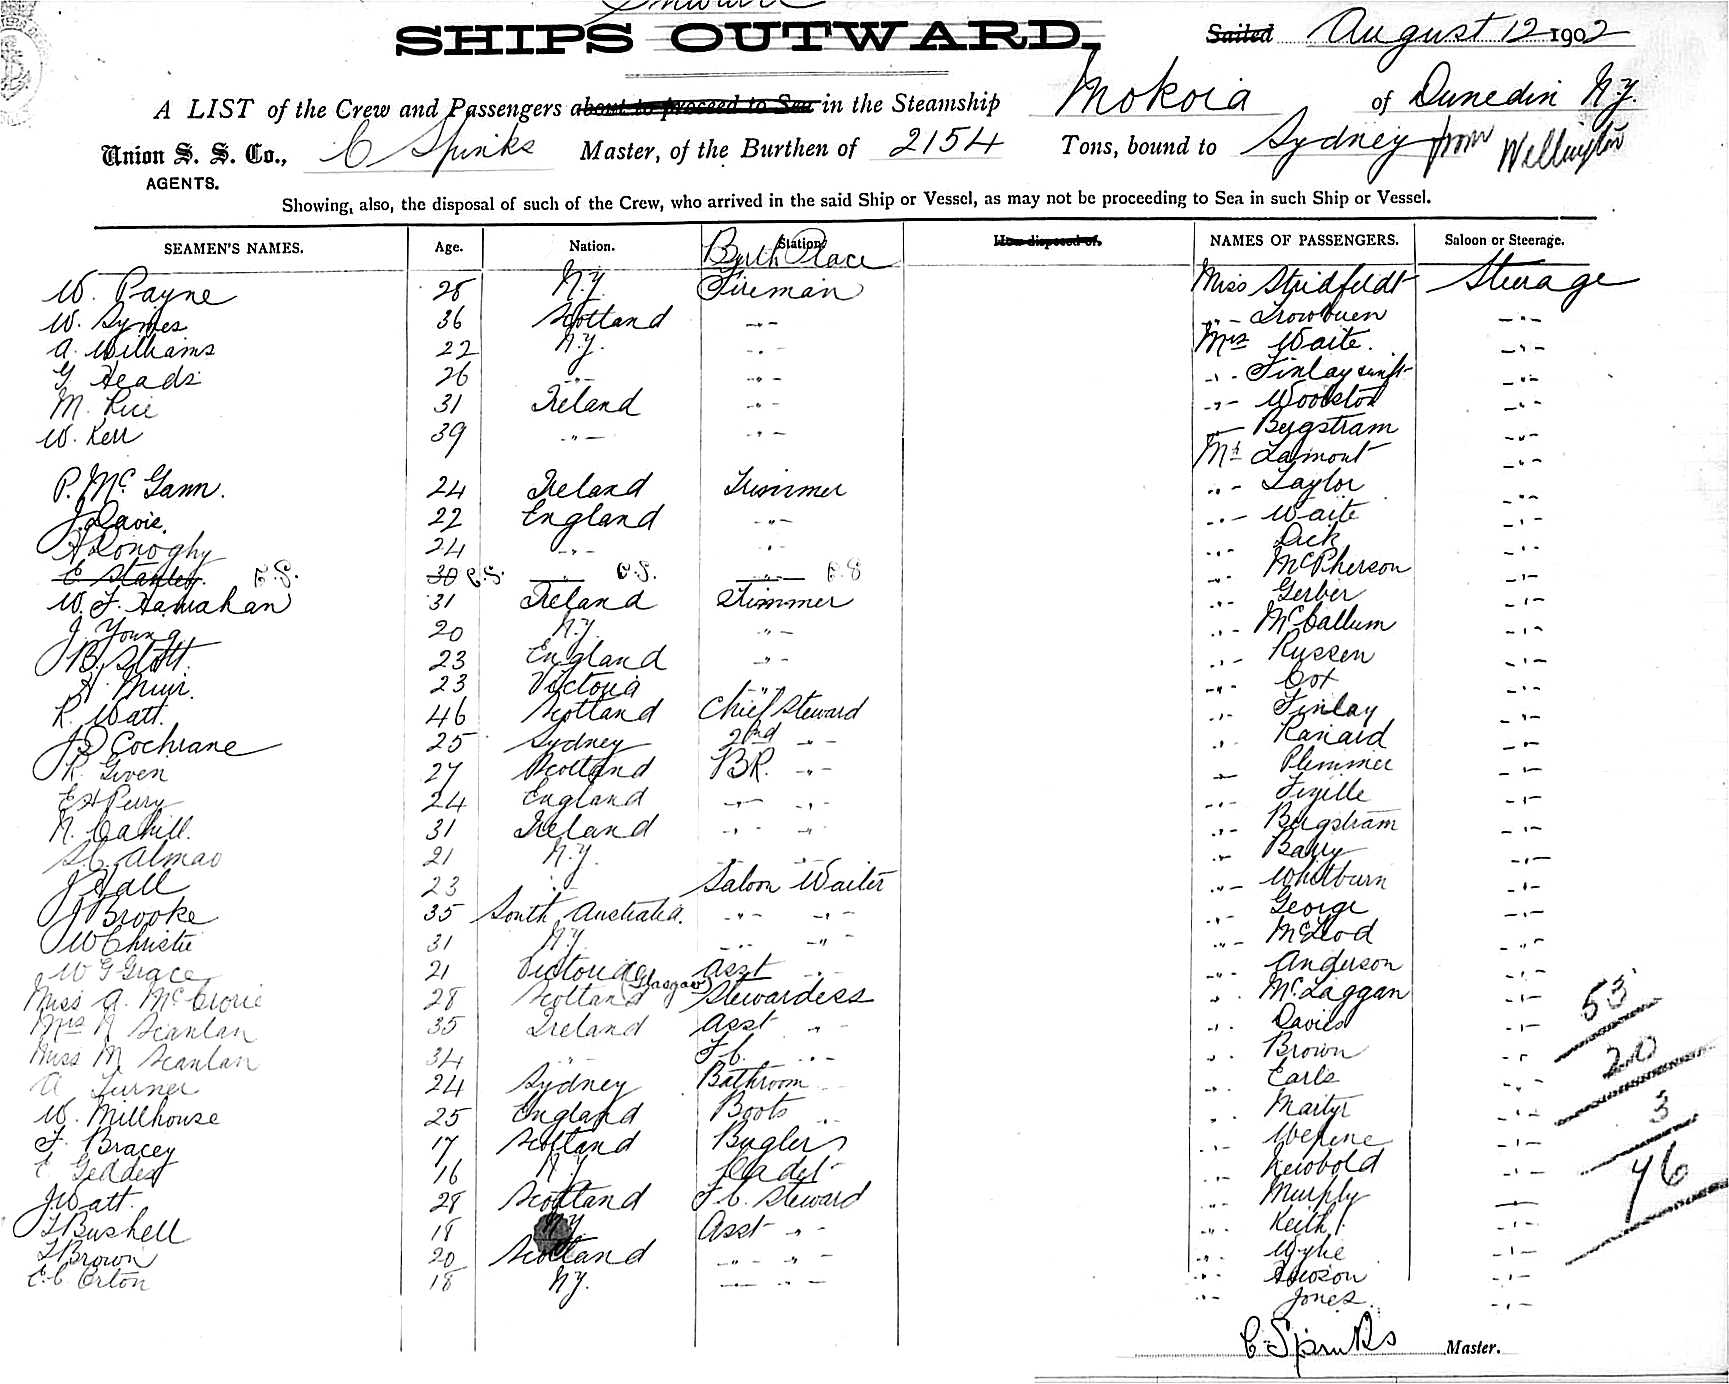 Inward
SHIPS OUTWARD, Sailed August 12 1902
A LIST of the Crew and Passengers about to proceed to Sea in the Steamship Mokoia of Dunedin N.Z.
Union S. S. Co., C Spinks Master, of the Burthen of 2154 Tons, bound to Sydney from Wellington
AGENTS.
Showing, also, the disposal of such of the Crew, who arrived in the said Ship or Vessel, as may not be proceeding to Sea in such Ship or Vessel.
SEAMEN'S NAMES. Age. Nation. Station Birth Place How disposed of. NAMES OF PASSENGERS. Saloon or Steerage.
W. Payne 28 N.Z. Fireman Miss Stridfeldt Steerage
W. Symes 36 Scotland -"- -"- -"-
A. Williams 22 N.Z. -"- Mrs Waite. -"-
G Heads 26 -"- -"- -"- Finlay -"-
M. Rice 31 Ireland -"- -"- Woolston -"-
W. Kerr 39 -"- -"- -"- Bergstram -"-
Mr Lamont -"-
P. McGann. 24 Ireland Trimmer -"- Taylor -"-
J. Davie. 22 England -"- -"- Waite -"-
H Donoghy 24 -"- -"- -"- Dick -"-
E Stanley. C.S. 30 C.S. -"- C.S. -"- C.S -"- McPherson -"-
W. F. Hanrahan 31 Ireland Trimmer -"- Gerber -"-
J. Young 20 N.Z. -"- -"- McCallum -"-
B. Slott. 23 England -"- -"- Russen -"-
A. Muir. 23 Victoria -"- -"- Cox -"-
R. Watt. 46 Scotland Chief Steward -"- Finlay -"-
J D Cochrane 25 Sydney 2nd -"- -"- Ranard -"-
R. Given 27 Scotland BR. -"- -"- Plimmer -"-
E H Perry 24 England -"- -"- -"- Fizille -"-
N. Cahill. 31 Ireland -"- -"- -"- Bergstram -"-
S. C. Almao 21 N.Z. -"- -"- -"- Barry -"-
J Hall 23 " Saloon Waiter -"- Whitburn -"-
J Brooke 35 South Australia. -"- -"- -"- George -"-
W Christie 31 N.Z. -"- -"- -"- McLeod -"-
W G Grace 21 Victoria Asst -"- -"- Anderson -"-
Miss A. McCrorie 28 Scotland (Glasgow) Stewardess -"- McLaggan -"-
Mrs N Scanlan 35 Ireland Asst -"- -"- Davies -"-
Miss M Scanlan 34 -"- F.C. -"- -"- Brown -"-
A Turner 24 Sydney Bathroom -"- Earls -"-
W. Millhouse 25 England Boots -"- Martyr -"-
F. Bracey 17 Scotland Bugler -"- -"-
E Geddes 16 N.Z. Cadet -"- Newbold -"-
J. Watt. 28 Scotland F.C. Steward -"- Murphy -"-
T Bushell 18 N.Z. Asst -"- -"- Keith -"-
T Brown 20 Scotland -"- -"- -"- Wylie -"-
E. C Orton 18 N.Z. -"- -"- -"- Hewson -"-
-"- Jones -"-
53
20
3
76
C. Spinks Master.